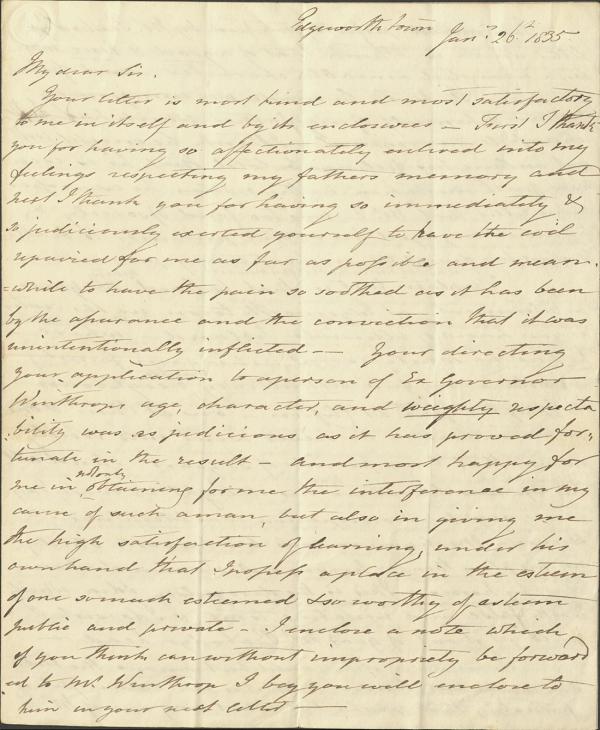 Edgeworthtown
Jany. 26th 1835.
My dear Sir.
Your letter is most kind and most satisfactory
to me in itself and by its enclosures — First I thank
you for having so affectionately entered into my
feelings respecting my fathers memory and
next I thank you for having so immediately &
so judiciously exerted yourself to have the evil
repaired for me as far as possible and mean-
=while to have the pain so soothed as it has been
by the assurance and the conviction that it was
unintentionally inflicted — Your directing
your application to a person of Ex Governor
Winthrops age, character, and weighty respecta
bility was as judicious as it has proved for-
tunate in the result — and most happy for
me in not only obtaining for me the interference in my
cause of such a man, but also in giving me
the high satisfaction of learning, under his
own hand that I possess a place in the esteem
of one so much esteemed & so worthy of esteem
public and private — I enclose a note which,
if you think can without impropriety be forward
ed to Mr. Winthrop I beg you will enclose to
him in your next letter —